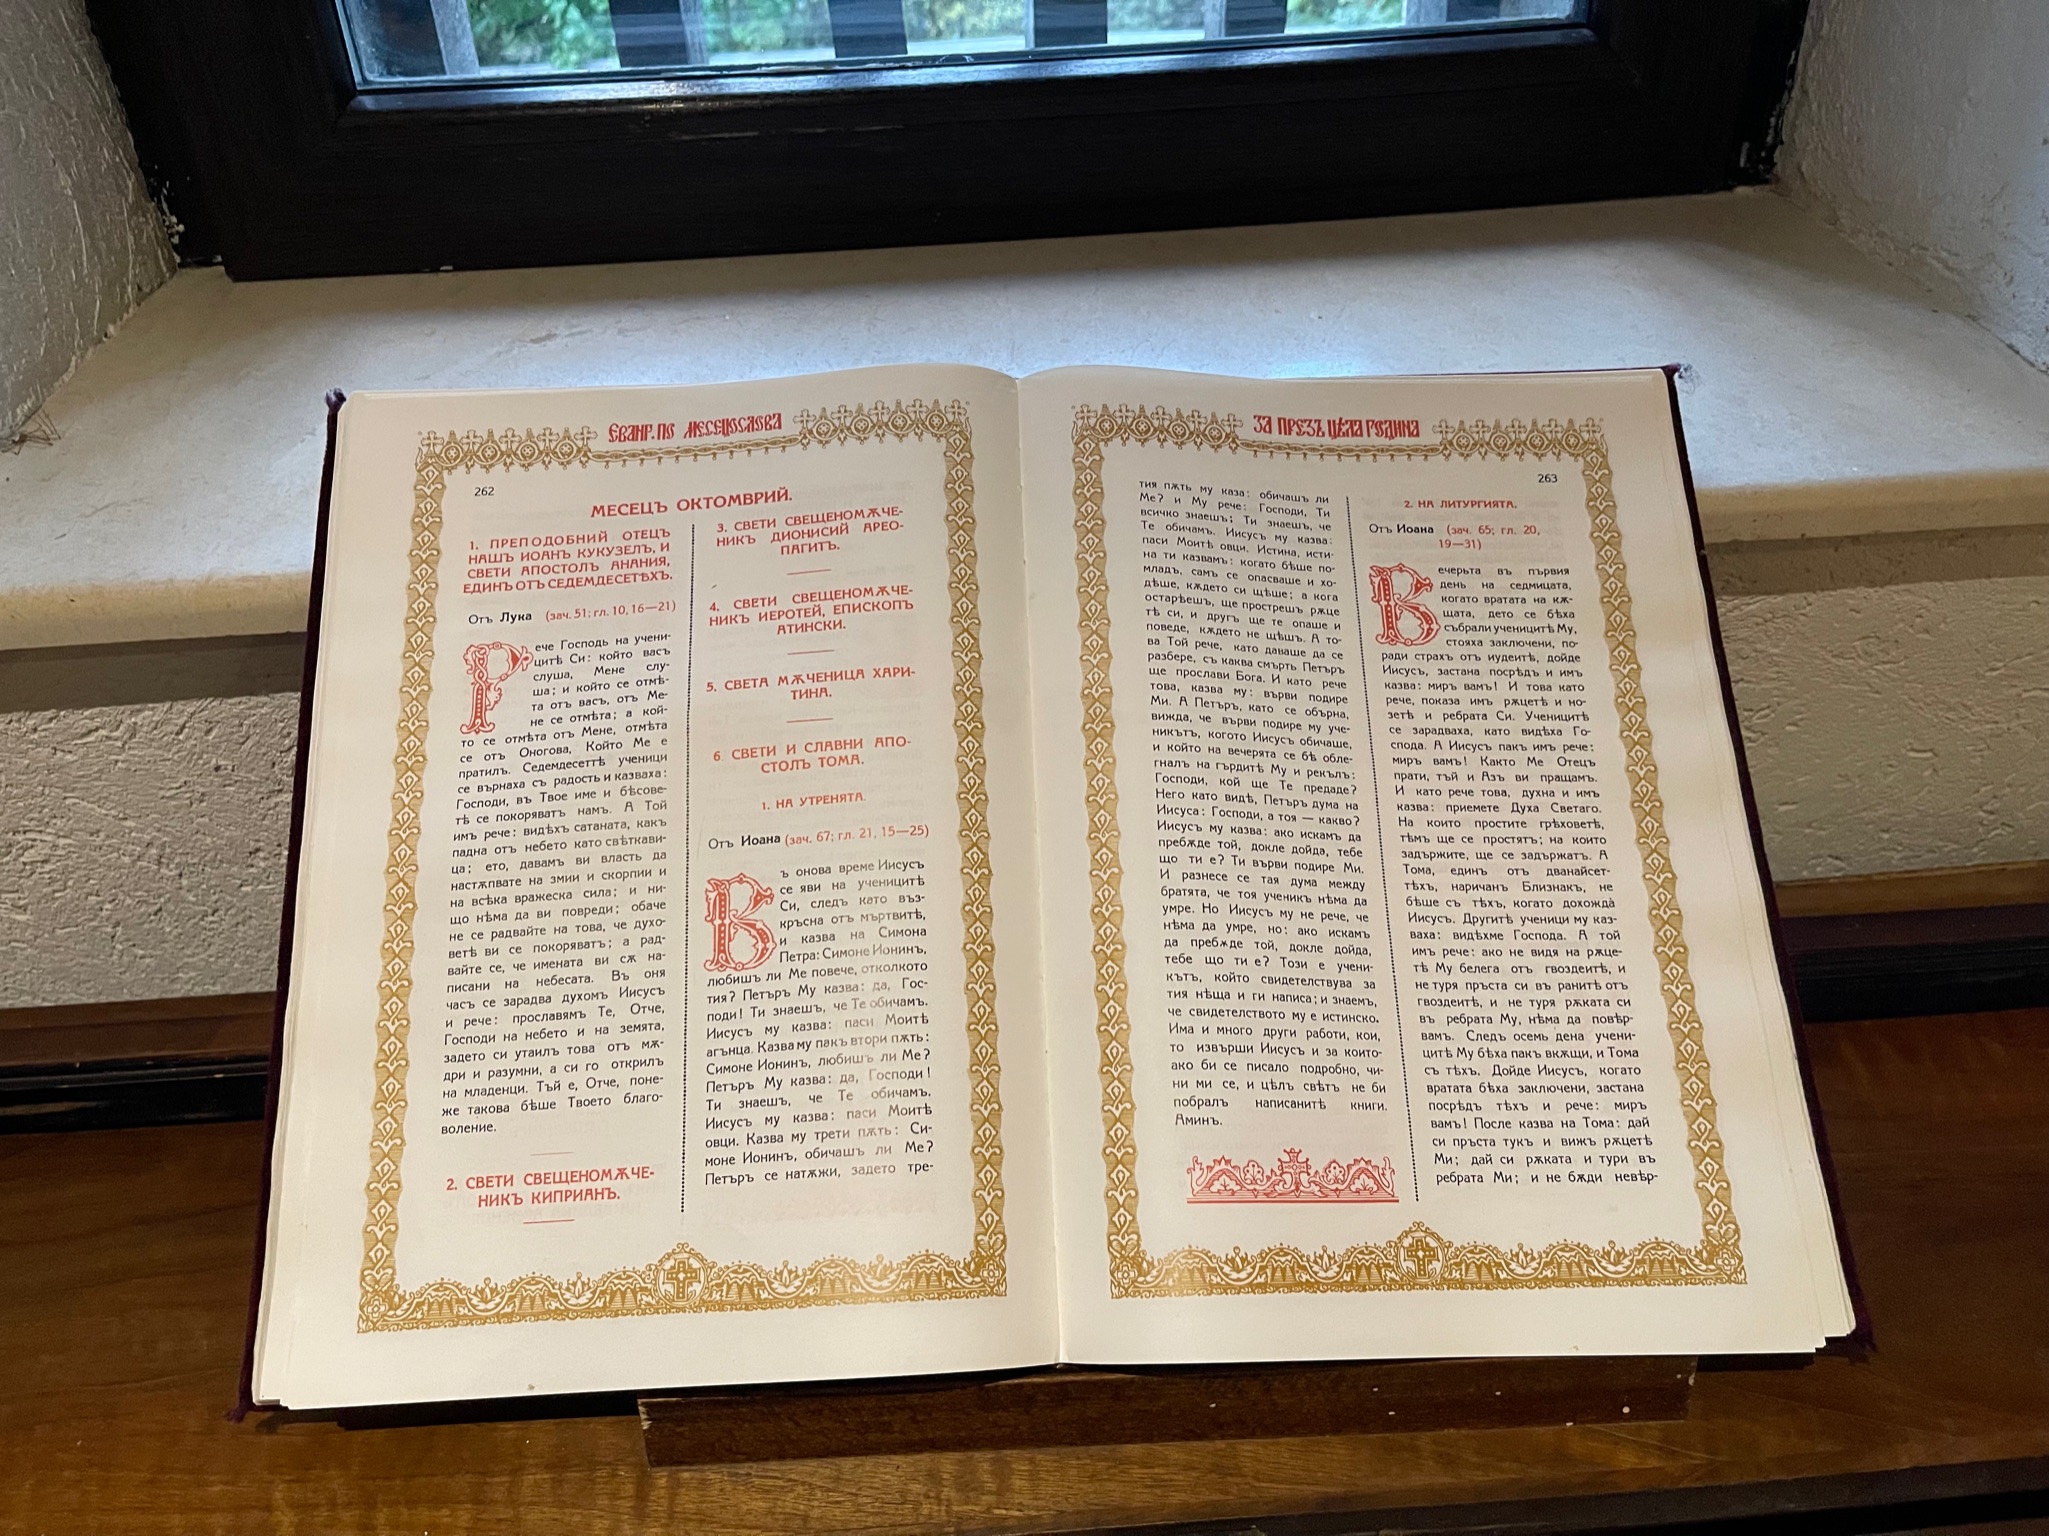 ЕВАНГ. ПО МЕСЕЦОСЛОВА
262
МЕСЕЦЪ ОКТОМВРИЙ.
1. ПРЕПОДОБНИЙ ОТЕЦЪ
НАШЪ ИОАНЪ КУКУЗЕЛЪ, И
СВЕТИ АПОСТОЛЪ АНАНИЯ,
ЕДИНЪ ОТЪ СЕДЕМДЕСЕТѢХЪ.
Отъ Лука (зач. 51; гл. 10, 16—21)
Рече Господь на учени-
цитѣ Си: който васъ
слуша, Мене слу-
ша; и който се отмѣ-
та отъ васъ, отъ Ме-
не се отмѣта; а кой-
то се отмѣта отъ Мене, отмѣта
се отъ Оногова, Който Ме е
пратилъ. Седемдесеттѣ ученици
се върнаха съ радость и казваха:
Господи, въ Твое име и бѣсове-
тѣ се покоряватъ намъ. А Той
имъ рече: видѣхъ сатаната, какъ
падна отъ небето като свѣткави-
ца; ето, давамъ ви власть да
настѫпвате на змии и скорпии и
на всѣка вражеска сила; и ни-
що нѣма да ви повреди; обаче
не се радвайте на това, че духо-
ветѣ ви се покоряватъ; а рад-
вайте се, че имената ви сѫ на-
писани на небесата. Въ оня
часъ се зарадва духомъ Иисусъ
и рече: прославямъ Те, Отче,
Господи на небето и на земята,
задето си утаилъ това отъ мѫ-
дри и разумни, а си го открилъ
на младенци. Тъй е, Отче, поне-
же такова бѣше Твоето благо-
воление.
2. СВЕТИ СВЕЩЕНОМѪЧЕ-
НИКЪ КИПРИАНЪ.
3. СВЕТИ СВЕЩЕНОМѪЧЕ-
НИКЪ ДИОНИСИЙ АРЕО-
ПАГИТЪ.
4. СВЕТИ СВЕЩЕНОМѪЧЕ-
НИКЪ ИЕРОТЕЙ, ЕПИСКОПЪ
АТИНСКИ.
5. СВЕТА МѪЧЕНИЦА ХАРИ-
ТИНА.
6. СВЕТИ И СЛАВНИ АПО-
СТОЛЪ ТОМА.
1. НА УТРЕНЯТА.
Отъ Иоана (зач. 67; гл. 21, 15—25)
Въ онова време Иисусъ
се яви на ученицитѣ
Си, следъ като въз-
кръсна отъ мъртвитѣ,
и казва на Симона
Петра: Симоне Ионинъ,
любишъ ли Ме повече, отколкото
тия? Петъръ Му казва: да, Гос-
поди! Ти знаешъ, че Те обичамъ.
Иисусъ му казва: паси Моитѣ
агънца. Казва му пакъ втори пѫть:
Симоне Ионинъ, любишъ ли Ме?
Петъръ Му казва: да, Господи!
Ти знаешъ, че Те обичамъ.
Иисусъ му казва: паси Моитѣ
овци. Казва му трети пѫть: Си-
моне Ионинъ, обичашъ ли Ме?
Петъръ се натѫжи, задето тре-
ЗА ПРЕЗЪ ЦѢЛА ГОДИНА
263
тия пѫть му каза: обичашъ ли
Ме? и Му рече: Господи, Ти
всичко знаешъ; Ти знаешъ, че
Те обичамъ. Иисусъ му казва:
паси Моитѣ овци. Истина, исти-
на ти казвамъ: когато бѣше по-
младъ, самъ се опасваше и хо-
дѣше, кѫдето си щѣше; а кога
остарѣешъ, ще прострешъ рѫце
тѣ си, и другъ ще те опаше и
поведе, кѫдето не щѣшъ. А то-
ва Той рече, като даваше да се
разбере, съ каква смърть Петъръ
ще прослави Бога. И като рече
това, казва му: върви подире
Ми. А Петъръ, като се обърна,
вижда, че върви подире му уче-
никътъ, когото Иисусъ обичаше,
и който на вечерята се бѣ обле-
гналъ на гърдитѣ Му и рекълъ:
Господи, кой ще Те предаде?
Него като видѣ, Петъръ дума на
Иисуса: Господи, а тоя — какво?
Иисусъ му казва: ако искамъ да
пребѫде той, докле дойда, тебе
що ти е? Ти върви подире Ми.
И разнесе се тая дума между
братята, че тоя ученикъ нѣма да
умре. Но Иисусъ му не рече, че
нѣма да умре, но: ако искамъ
да пребѫде той, докле дойда,
тебе що ти е? Този е учени-
кътъ, който свидетелствува за
тия нѣща и ги написа; и знаемъ,
че свидетелството му е истинско.
Има и много други работи, кои,
то извърши Иисусъ и за които-
ако би се писало подробно, чи-
ни ми се, и цѣлъ свѣтъ не би
побралъ написанитѣ книги.
Аминъ.
2. НА ЛИТУРГИЯТА.
Отъ Иоана (зач. 65; гл. 20,
19—31)
Вечерьта въ първия
день на седмицата,
когато вратата на кѫ-
щата, дето се бѣха
събрали ученицитѣ Му,
стояха заключени, по-
ради страхъ отъ иудеитѣ, дойде
Иисусъ, застана посрѣдъ и имъ
казва: миръ вамъ! И това като
рече, показа имъ рѫцетѣ и но-
зетѣ и ребрата Си. Ученицитѣ
се зарадваха, като видѣха Го-
спода. А Иисусъ пакъ имъ рече:
миръ вамъ! Както Ме Отецъ
прати, тъй и Азъ ви пращамъ.
И като рече това, духна и имъ
казва: приемете Духа Светаго.
На които простите грѣховетѣ,
тѣмъ ще се простятъ; на които
задържите, ще се задържатъ. А
Тома, единъ отъ дванайсет-
тѣхъ, наричанъ Близнакъ, не
бѣше съ тѣхъ, когато дохожда̀
Иисусъ. Другитѣ ученици му каз-
ваха: видѣхме Господа. А той
имъ рече: ако не видя на рѫце-
тѣ Му белега отъ гвоздеитѣ, и
не туря пръста си въ ранитѣ отъ
гвоздеитѣ, и не туря рѫката си
въ ребрата Му, нѣма да повѣр-
вамъ. Следъ осемь дена учени-
цитѣ Му бѣха пакъ вкѫщи, и Тома
съ тѣхъ. Дойде Иисусъ, когато
вратата бѣха заключени, застана
посрѣдъ тѣхъ и рече: миръ
вамъ! После казва на Тома: дай
си пръста тукъ и вижъ рѫцетѣ
Ми; дай си рѫката и тури въ
ребрата Ми; и не бѫди невѣр-